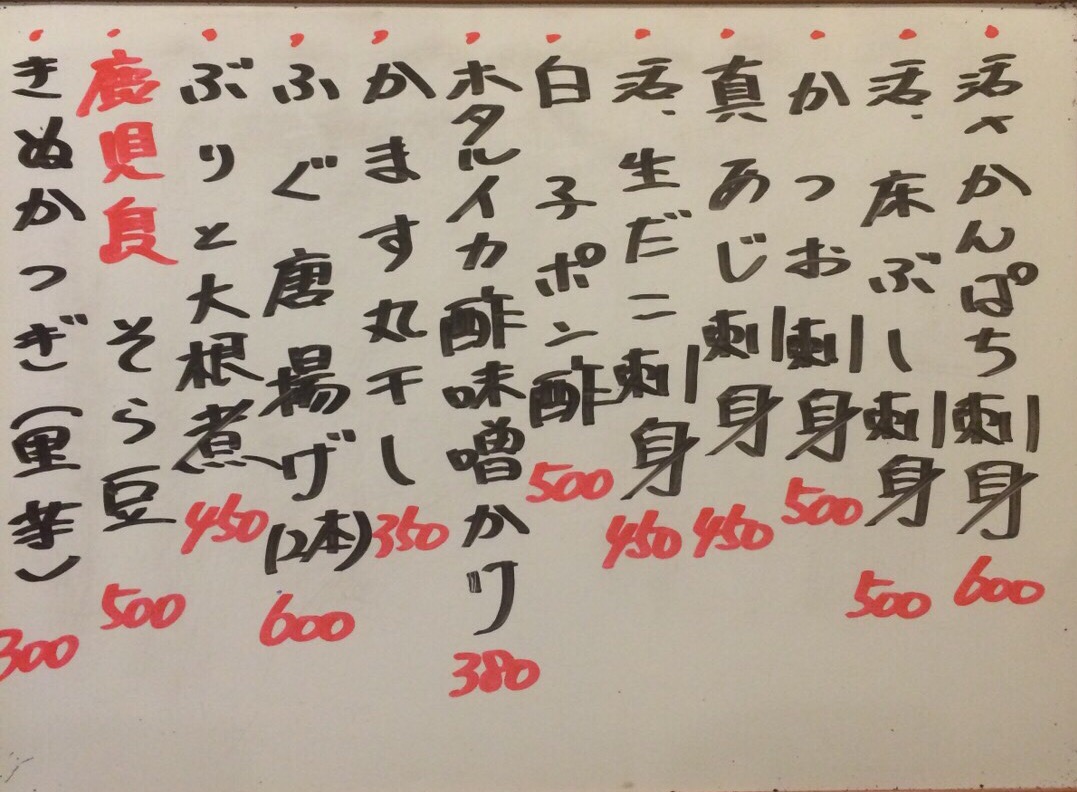 活〆かんぱち刺身 600
活、床ぶし刺身 500
かつお刺身 500
真あじ刺身 450
活、生だこ刺身 450
白子ポン酢 500
ホタルイカ酢味噌かけ 380
かます丸干し 350
ふぐ唐揚げ(2本) 600
ぶりと大根煮 450
鹿児島 そら豆 500
きぬかつぎ(里芋) 300